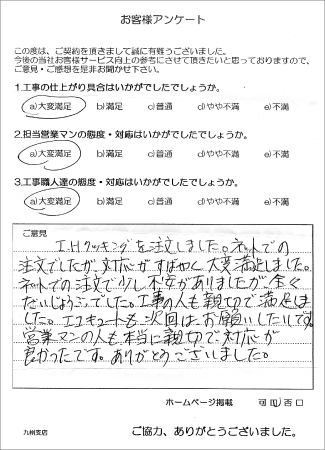 お客様アンケート
この度は、ご契約を頂きまして誠に有難うございました。
今後の当社お客様サービス向上の参考にさせて頂きたいと思っておりますので、
ご意見・ご感想を是非お聞かせ下さい。
1.工事の仕上がり具合はいかがでしたでしょうか。
a)大変満足 b)満足 c)普通 d)やや不満 e)不満
2.担当営業マンの態度・対応はいかがでしたでしょうか。
a)大変満足 b)満足 c)普通 d)やや不満 e)不満
3.工事職人達の態度・対応はいかがでしたでしょうか。
a)大変満足 b)満足 c)普通 d)やや不満 e)不満
ご意見
I.Hクッキングを注文しました。ネットでの
注文でしたが、対応がすばやく大変満足しました。
ネットでの注文で少し不安がありましたが、全く
だいじょうぶでした。工事の人も親切で満足しま
した。エコキュートも次回はお願いしたいです。
営業マンの人も本当に親切で対応が
良かったです。ありがとうございました。
ホームページ掲載 可 否
九州支店
ご協力、ありがとうございました。